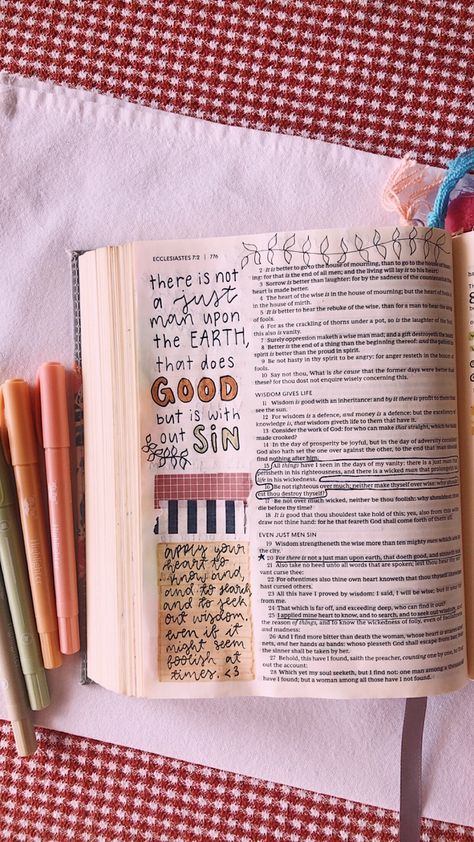 ECCLESIASTES 7:2 | 776
there is not
a just
man upon
the EARTH,
that does
GOOD
but is with
out SIN
APPLY YOUR
heart to
know and,
and to search
and to seek
out wisdom.
even if it
might seem
foolish at
times. <3
2 It is better to go to the house of mourning, than to go to the house of feast-
ing: for that is the end of all men; and the living will lay it to his heart.
3 Sorrow is better than laughter: for by the sadness of the countenance the
heart is made better.
4 The heart of the wise is in the house of mourning; but the heart of fools is
in the house of mirth.
5 It is better to hear the rebuke of the wise, than for a man to hear the song
of fools.
6 For as the crackling of thorns under a pot, so is the laughter of the fool:
this also is vanity.
7 Surely oppression maketh a wise man mad; and a gift destroyeth the heart.
8 Better is the end of a thing than the beginning thereof: and the patient in
spirit is better than the proud in spirit.
9 Be not hasty in thy spirit to be angry: for anger resteth in the bosom of
fools.
10 Say not thou, What is the cause that the former days were better than
these? for thou dost not enquire wisely concerning this.
WISDOM GIVES LIFE
11 Wisdom is good with an inheritance: and by it there is profit to them that
see the sun.
12 For wisdom is a defence, and money is a defence: but the excellency of
knowledge is, that wisdom giveth life to them that have it.
13 Consider the work of God: for who can make that straight, which he hath
made crooked?
14 In the day of prosperity be joyful, but in the day of adversity consider:
God also hath set the one over against the other, to the end that man should
find nothing after him.
15 All things have I seen in the days of my vanity: there is a just man that
perisheth in his righteousness, and there is a wicked man that prolongeth his
life in his wickedness.
16 Be not righteous over much; neither make thyself over wise: why should-
est thou destroy thyself?
17 Be not over much wicked, neither be thou foolish: why shouldest thou
die before thy time?
18 It is good that thou shouldest take hold of this; yea, also from this with-
draw not thine hand: for he that feareth God shall come forth of them all.
EVEN JUST MEN SIN
19 Wisdom strengtheneth the wise more than ten mighty men which are in
the city.
20 For there is not a just man upon earth, that doeth good, and sinneth not.
21 Also take no heed unto all words that are spoken; lest thou hear thy ser-
vant curse thee:
22 For oftentimes also thine own heart knoweth that thou thyself likewise
hast cursed others.
23 All this have I proved by wisdom: I said, I will be wise; but it was far
from me.
24 That which is far off, and exceeding deep, who can find it out?
25 I applied mine heart to know, and to search, and to seek out wisdom, and
the reason of things, and to know the wickedness of folly, even of foolishness
and madness:
26 And I find more bitter than death the woman, whose heart is snares and
nets, and her hands as bands: whoso pleaseth God shall escape from her; but
the sinner shall be taken by her.
27 Behold, this have I found, saith the preacher, counting one by one, to find
out the account:
28 Which yet my soul seeketh, but I find not: one man among a thousand
have I found; but a woman among all those have I not found.